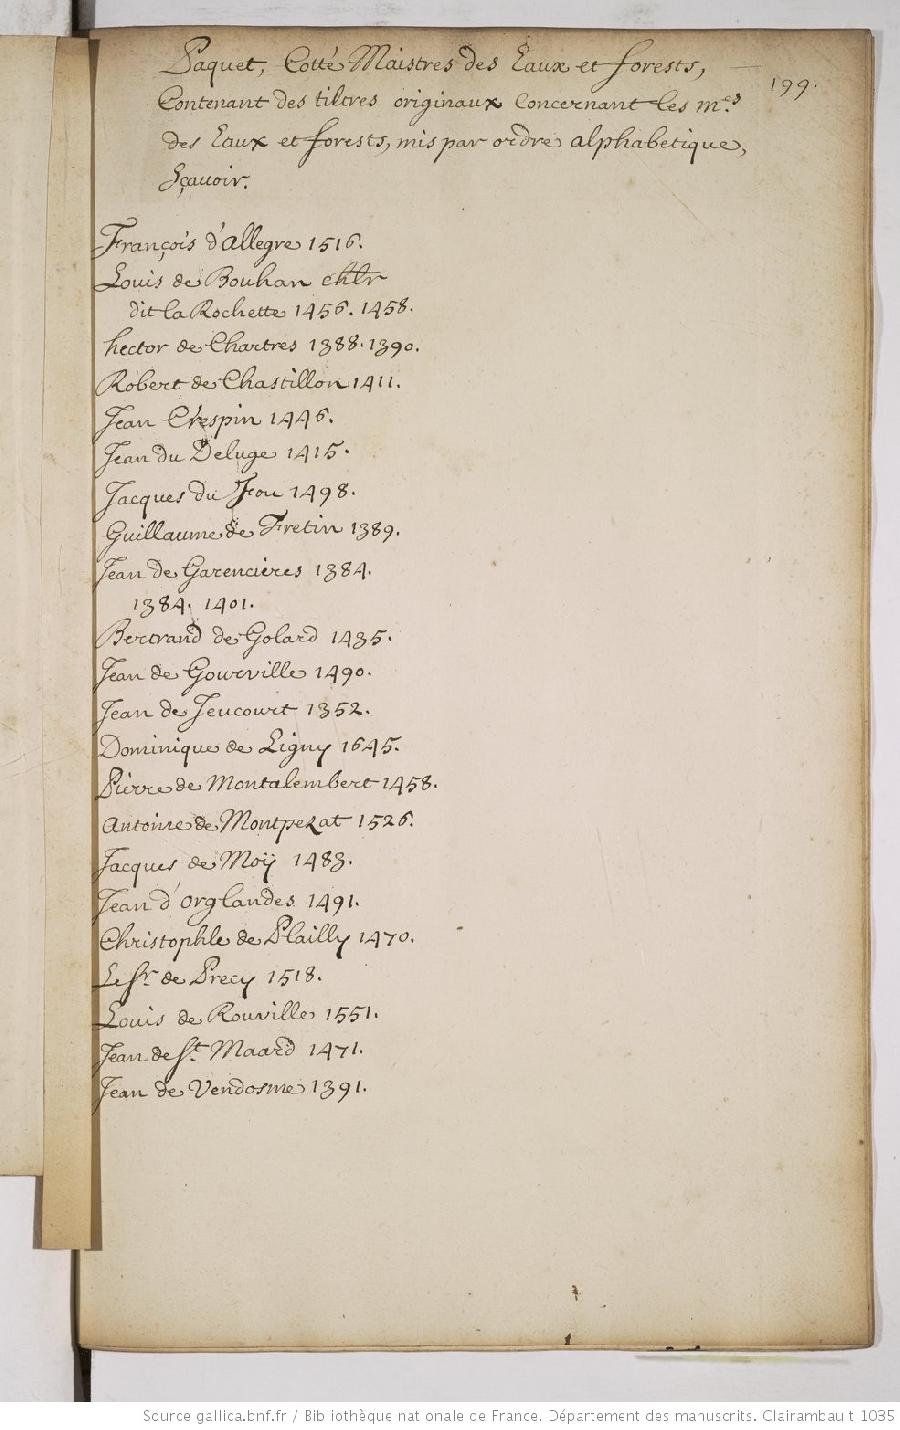 Paquet, Cotté Maistres des Eaux et forests,
199.
Contenant des tiltres originaux Concernant les m.es
des Eaux et forests, mis par ordre alphabetique,
Sçauoir.
François d'Allegre 1516.
Louis de Bouhan
dit la Rochette 1456. 1458.
hector de Chartres 1388. 1390.
Robert de Chastillon 1411.
Jean Crespin 1446.
Jean du Deluge 1415.
Jacques du Fou 1498.
Guillaume de Fretin 1389.
Jean de Garencieres 1384.
1384. 1401.
Bertrand de Golard 1435.
Jean de Gourville 1490.
Jean de Jeucourt 1352.
Dominique de Ligny 1645.
Pierre de Montalembert 1458.
Antoine de Montpezat 1526.
Jacques de Moÿ 1483.
Jean d'orglandes 1491.
Christophle de Plailly 1470.
Le Sr. de Precy 1518.
Louis de Rouville 1551.
Jean de St. Maard 1471.
Jean de Vendosme 1391.
Source gallica.bnf.fr / Bibliothèque nationale de France. Département des manuscrits. Clairambault 1035